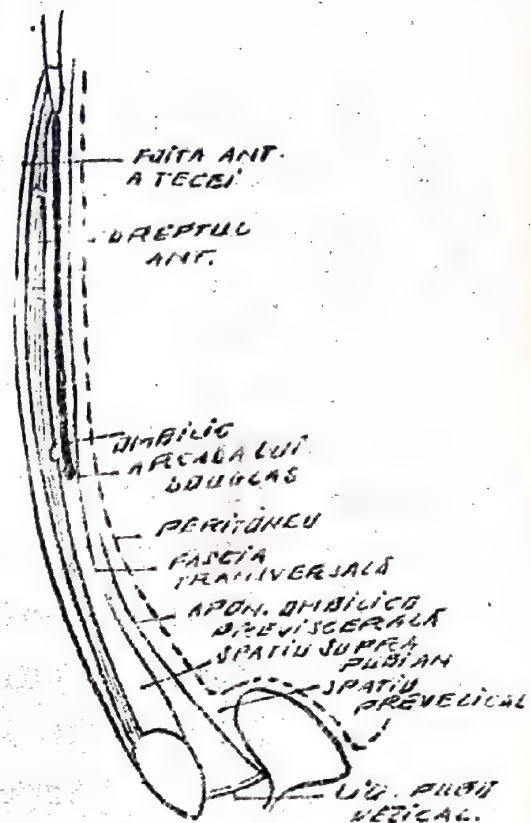 FOIŢA ANT.
A TECEI
DREPTUL
ANT.
OMBILIC
ARCADA LUI
DOUGLAS
PERITONEU
FASCIA
TRANSVERSALĂ
APON. OMBILICO
PREVISCERALĂ
SPATIU SUPRA
PUBIAN
SPATIU
PREVEZICAL
LIG. PUBO
VEZICAL.